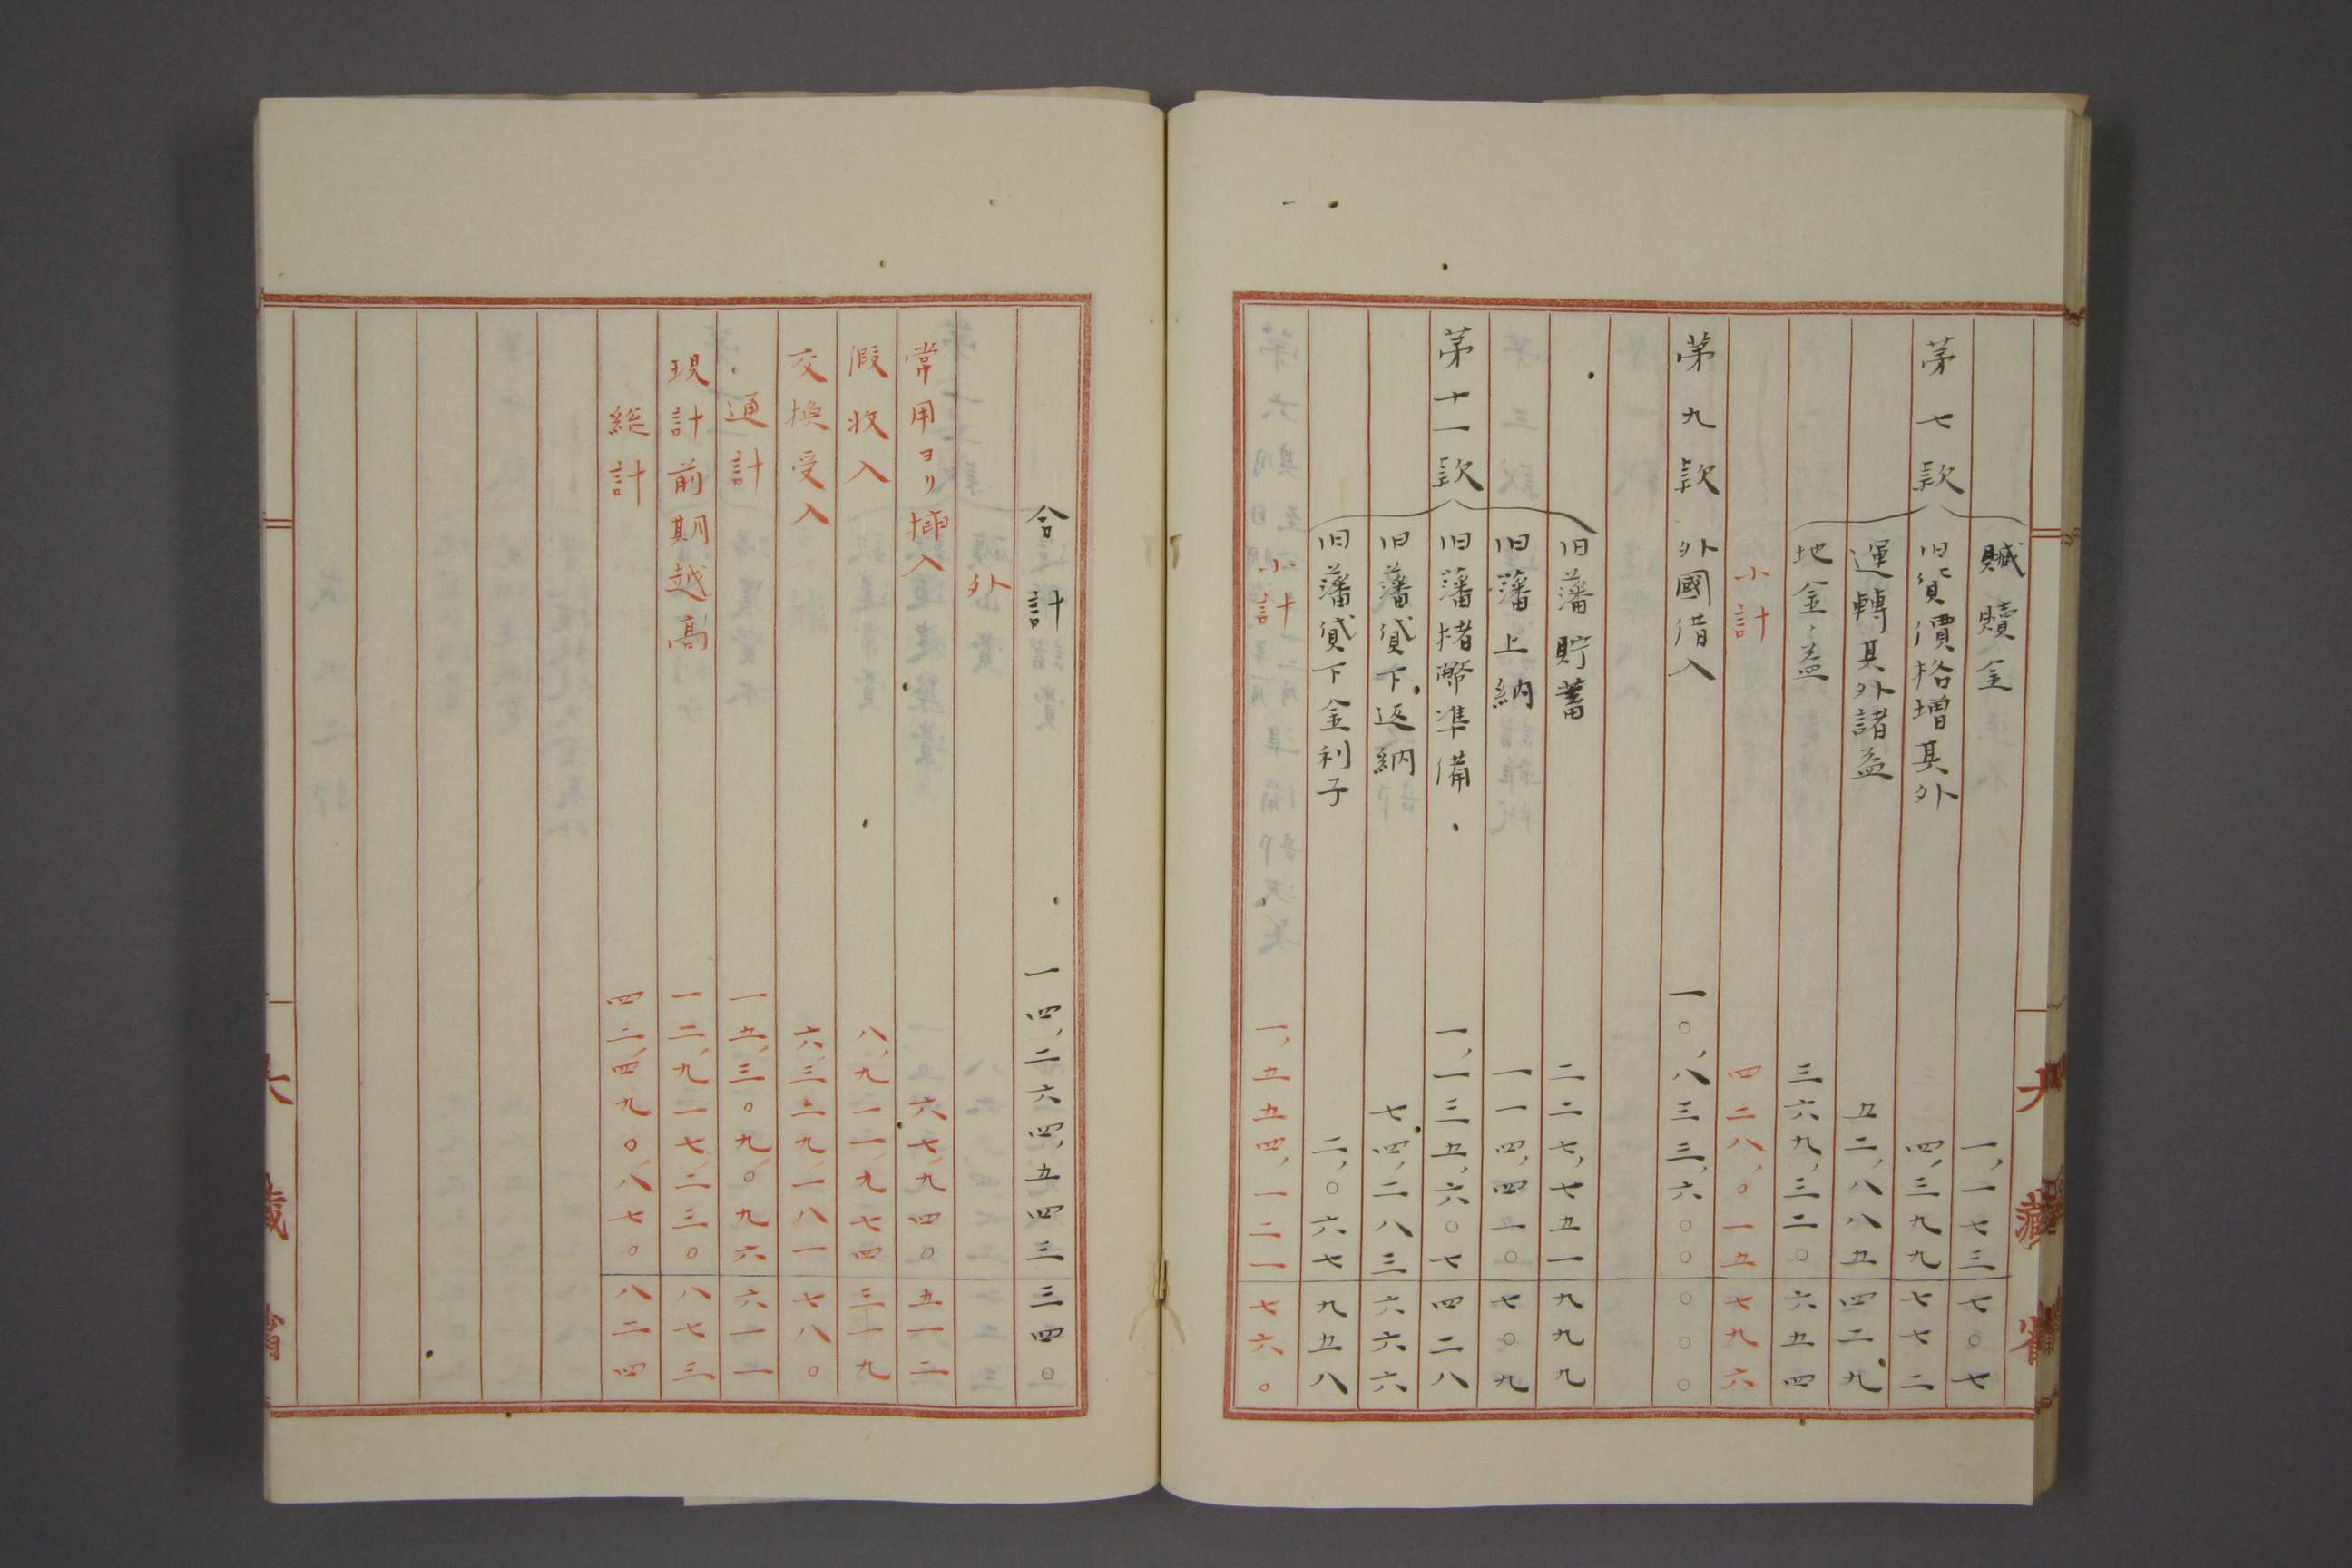 大藏省
贓贖金 一,一七三 七〇七
第七款 旧貨價格増其外 四,三九九 七七二
運轉其外諸益 五二,八八五 四二九
地金益 三六九,三二〇 六五四
小計 四二八,〇一五 七九六
第九款 外國借入 一〇,八三三,六〇〇 〇〇〇
旧藩貯蓄 二二七,七五一 九九九
旧藩上納 一一四,四一〇 七〇九
第十一款 旧藩楮幣準備 一,一三五,六〇七 四二八
旧藩貸下返納 七四,二八三 六六六
旧藩貸下金利子 二,〇六七 九五八
小計 一,五五四,一二一 七六〇
合計 一四,二六四,五四三 三四〇
外
常用ヨリ挿入 六七,九四〇 五一二
假收入 八,九一一,九七四 三一九
交換受入 六,三二九,一八一 七八〇
通計 一五,三〇九,〇九六 六一一
現計前期越高 一二,九一七,二三〇 八七三
総計 四二,四九〇,八七〇 八二四
大藏省